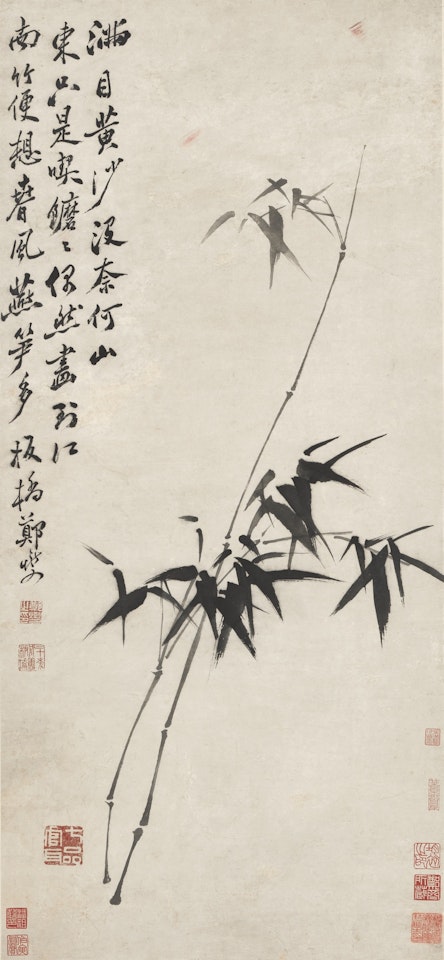 滿目黃沙沒奈何山
東只是喫饝〻偶然畫到江
南竹便想春風燕笋多 板橋鄭燮
七品官耳